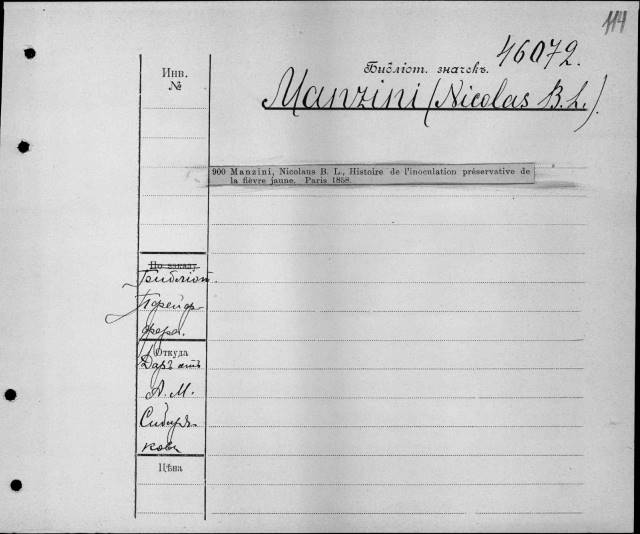 114
46072.
Библіот. значекъ.
Manzini (Nicolas B. L.).
Инв.
№
900 Manzini, Nicolaus B. L., Histoire de l'inoculation préservative de
la fièvre jaune. Paris 1858.
По заказу
Библіот.
Откуда
Даръ отъ
А. М.
Сибиря-
кова
Цѣна